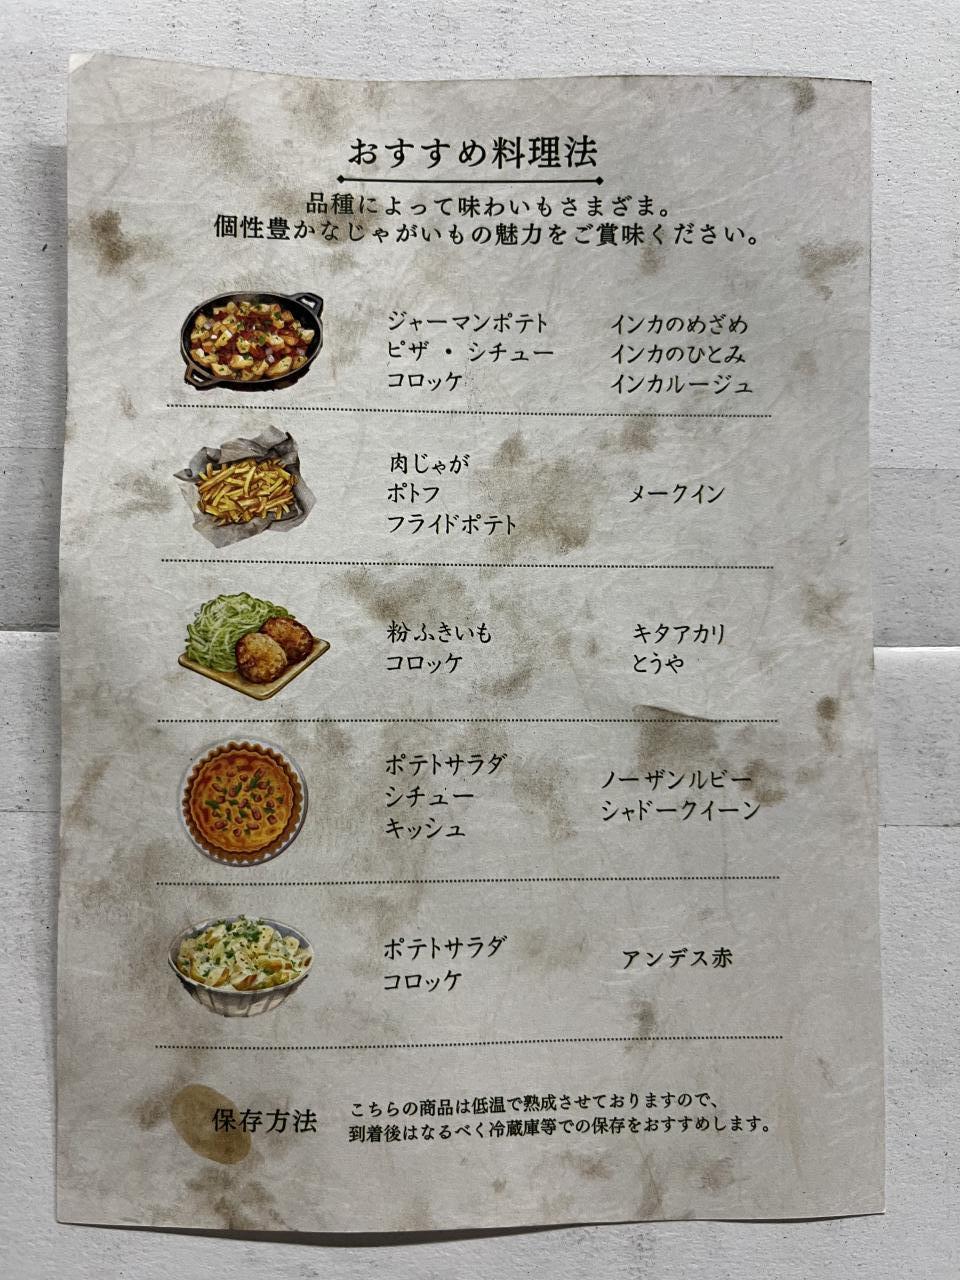 おすすめ料理法
品種によって味わいもさまざま。
個性豊かなじゃがいもの魅力をご賞味ください。
ジャーマンポテト
ピザ・シチュー
コロッケ
インカのめざめ
インカのひとみ
インカルージュ
肉じゃが
ポトフ
フライドポテト
メークイン
粉ふきいも
コロッケ
キタアカリ
とうや
ポテトサラダ
シチュー
キッシュ
ノーザンルビー
シャドークイーン
ポテトサラダ
コロッケ
アンデス赤
保存方法
こちらの商品は低温で熟成させておりますので、
到着後はなるべく冷蔵庫等での保存をおすすめします。